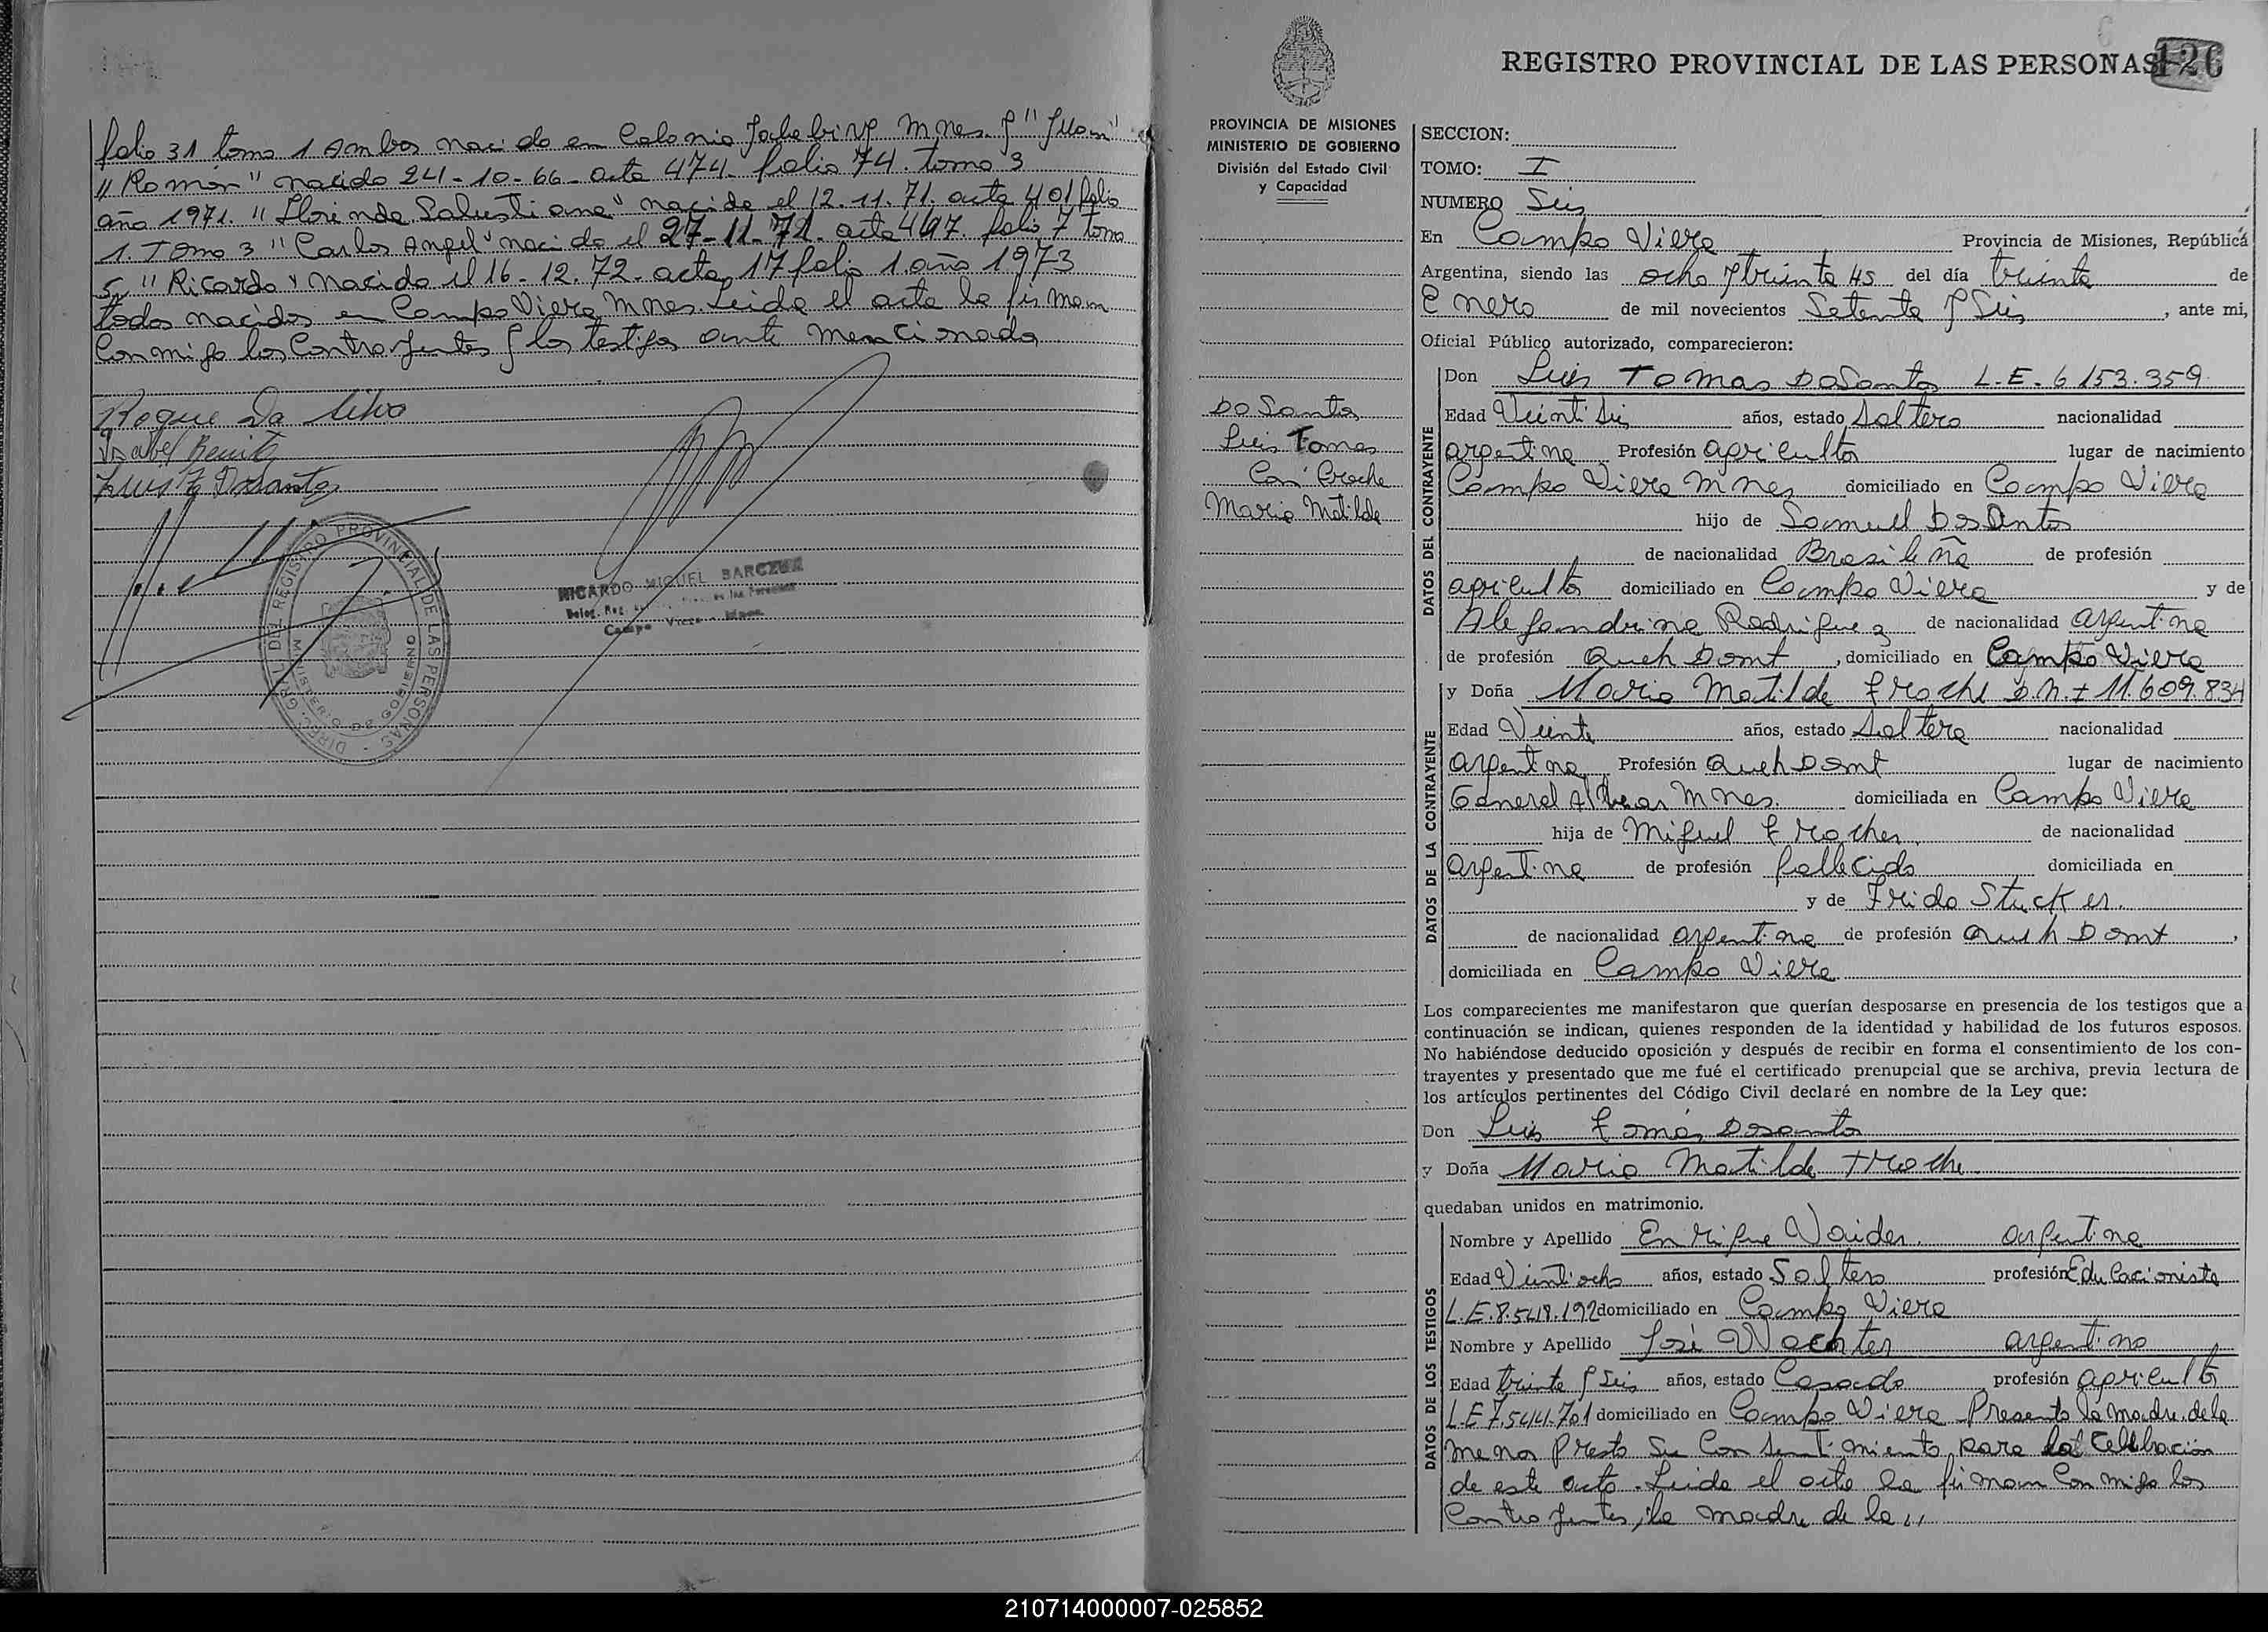 folio 31 tomo 1 Ambos nacido en Colonia Mnes. y "Juan"
"Román" nacido 24-10-66- acta 474- folio 74. tomo 3
año 1971. "Florinda Salustiana" nacida el 12.11.71. acta 401 folio
1. Tomo 3 "Carlos Angel" nacido el 27-11-71. acta 497. folio 7 tomo
5, "Ricardo" nacido el 16-12.72- acta 17 folio 1 año 1973
todos nacidos en Campo Viera Mnes. Leida el acta la firman
conmigo los Contrayentes y los testigos ante mencionado
Roque Da Silva
Isabel Benitz
Luis T Dosantos
DIREC. GRAL. DEL REGISTRO PROVINCIAL DE LAS PERSONAS
MINISTERIO DE GOBIERNO
RICARDO MIGUEL BARCZUK
Deleg. Reg. de las Personas
Campo Viera - Mnes.
REGISTRO PROVINCIAL DE LAS PERSONAS
126
PROVINCIA DE MISIONES
MINISTERIO DE GOBIERNO
División del Estado Civil
y Capacidad
Do Santos
Luis Tomas
Con Croche
Maria Matilde
SECCION:
TOMO: I
NUMERO Seis
En Campo Viera Provincia de Misiones, República
Argentina, siendo las ocho y treinta Hs del día treinta de
Enero de mil novecientos Setenta y Seis, ante mi,
Oficial Público autorizado, comparecieron:
DATOS DEL CONTRAYENTE
Don Luis Tomas DoSantos L.E. 6153.359
Edad Veinti Seis años, estado Soltero nacionalidad
argentina Profesión agricultor lugar de nacimiento
Campo Viera Mnes domiciliado en Campo Viera
hijo de Samuel Dos Antos
de nacionalidad Brasileña de profesión
agricultor domiciliado en Campo Viera y de
Alejandrina Rodriguez de nacionalidad argentina
de profesión Queh Domt, domiciliado en Campo Viera
DATOS DE LA CONTRAYENTE
y Doña Maria Matilde Troche D.N.I 11.609.834
Edad Veinte años, estado Soltera nacionalidad
argentina Profesión Queh Domt lugar de nacimiento
General Alvear Mnes. domiciliada en Campo Viera
hija de Miguel Troches de nacionalidad
Argentina de profesión fallecido domiciliada en
y de Frida Stucker.
de nacionalidad argentina de profesión Queh Domt,
domiciliada en Campo Viera
Los comparecientes me manifestaron que querían desposarse en presencia de los testigos que a
continuación se indican, quienes responden de la identidad y habilidad de los futuros esposos.
No habiéndose deducido oposición y después de recibir en forma el consentimiento de los con-
trayentes y presentado que me fué el certificado prenupcial que se archiva, previa lectura de
los artículos pertinentes del Código Civil declaré en nombre de la Ley que:
Don Luis Tomás Dosantos
y Doña Maria Matilde Troche
quedaban unidos en matrimonio.
DATOS DE LOS TESTIGOS
Nombre y Apellido Enrique Vaider. argentina
Edad Vintiocho años, estado Soltero profesión Educacionista
L.E.8.548.192 domiciliado en Campo Viera
Nombre y Apellido José Wachter argentino
Edad treinta y Seis años, estado Casado profesión agricultor
L.E 7.544.701 domiciliado en Campo Viera Presente la madre de la
menor Presto Su Consentimiento para la Celebración
de este acto. Leida el acta la firman Conmigo los
Contrayentes, la madre de la "
210714000007-025852